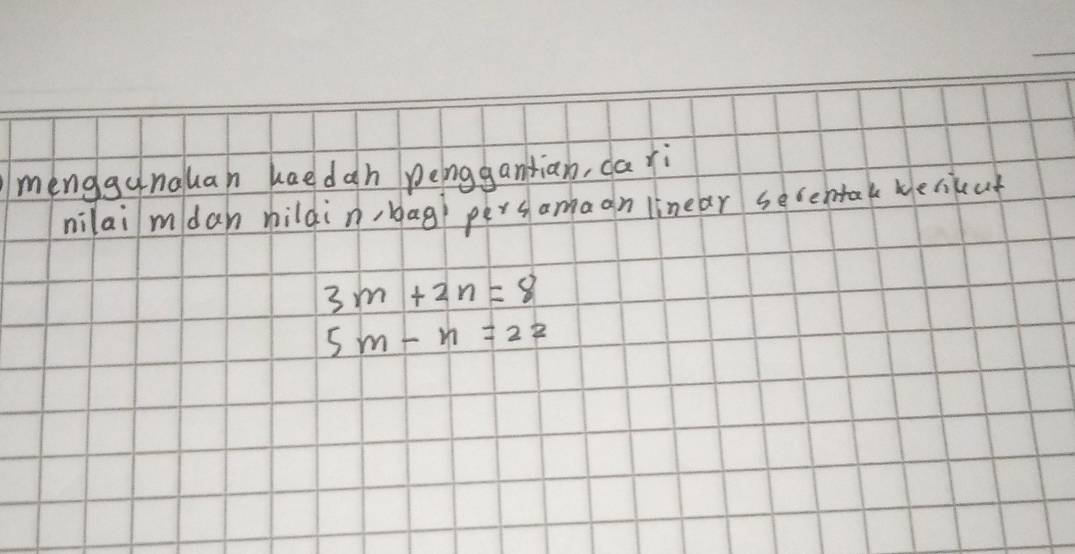 ) menggunakan kaedah penggantian, cari
nilai m dan nilai n, bagi persamaan linear serentak berikut
3m + 2n = 8
5m - n = 22